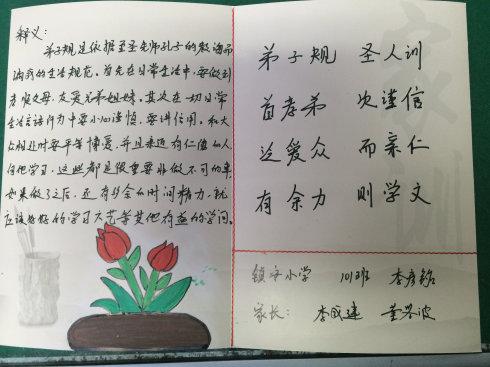 释义：
弟子规是依据至圣先师孔子的教诲而
编成的生活规范。首先在日常生活中，要做到
孝顺父母，友爱兄弟姐妹。其次在一切日常
生活言语行为中要小心谨慎，要讲信用。和大
众相处时要平等博爱，并且亲近有仁德的人，
向他学习，这些都是很重要非做不可的事，
如果做了之后，还有多余的时间精力，就
应该好好的学习六艺等其他有益的学问。
弟子规 圣人训
首孝弟 次谨信
泛爱众 而亲仁
有余力 则学文
小学 101班 李彦铭
家长： 李成建